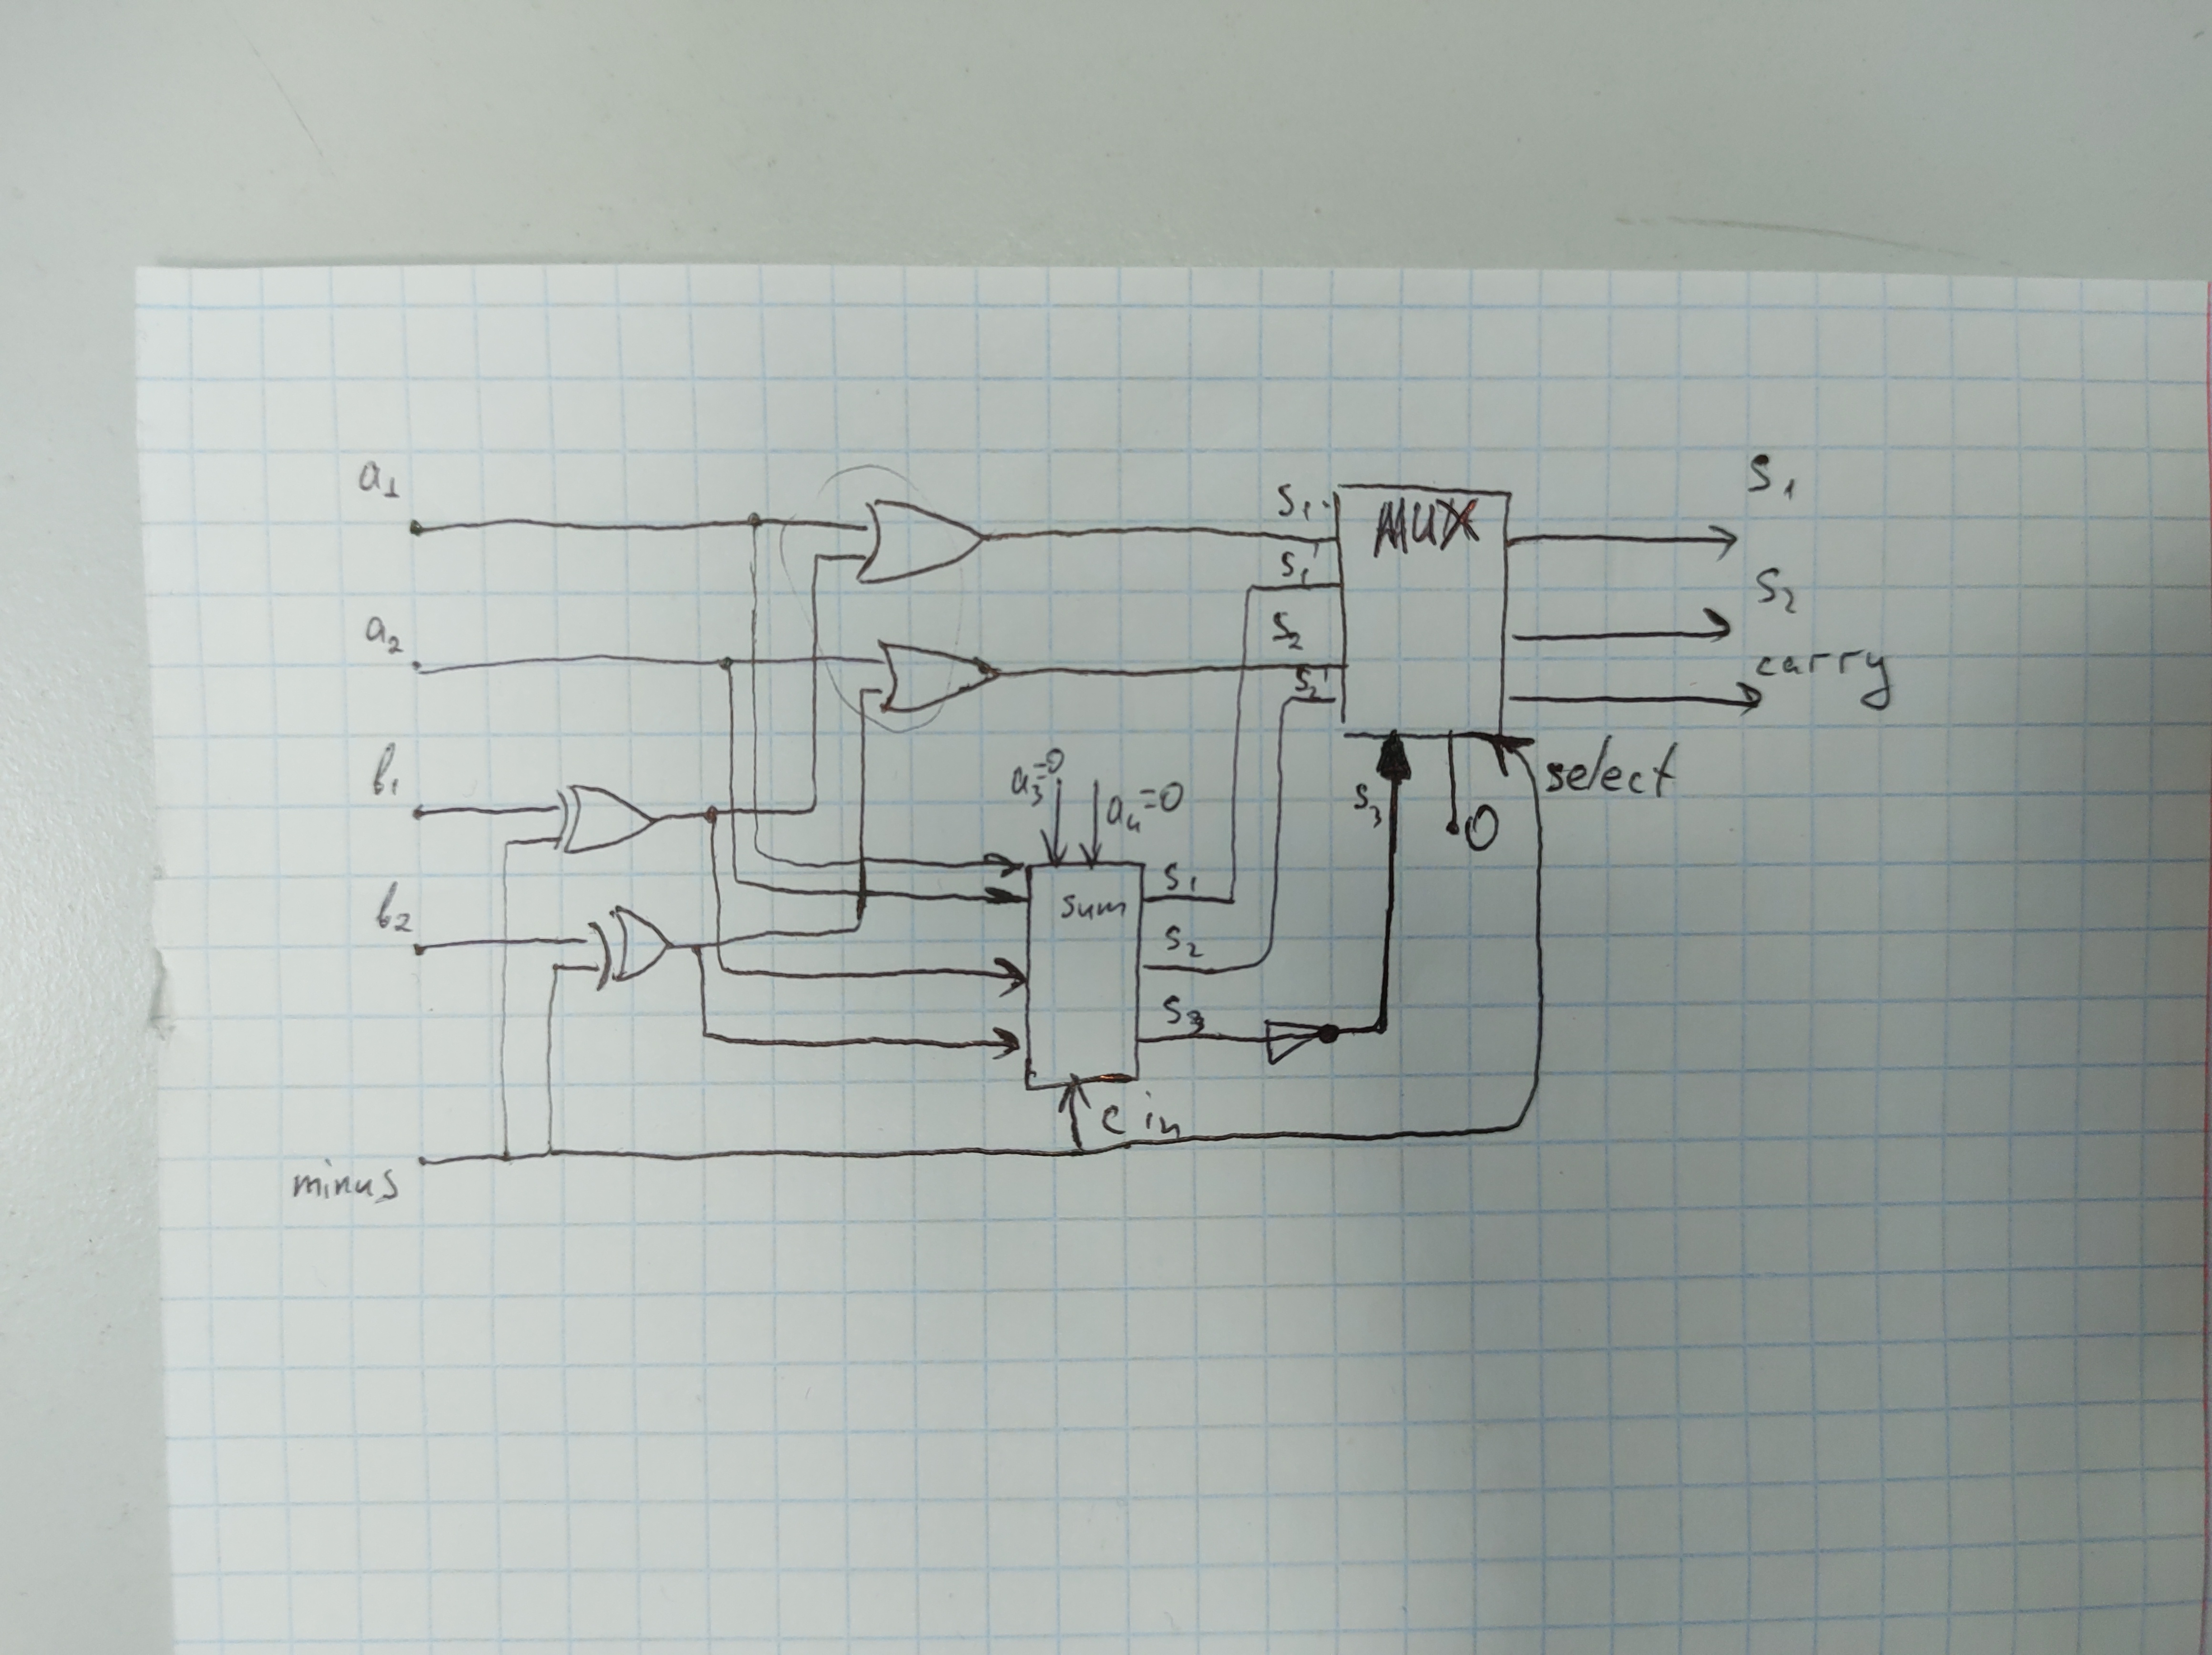 a₁
a₂
b₁
b₂
minus
a₃=0
a₄=0
sum
C in
S₁
S₂
S₃
S₁'
S₂
S₂'
S₃
MUX
0
select
S₁
S₂
carry